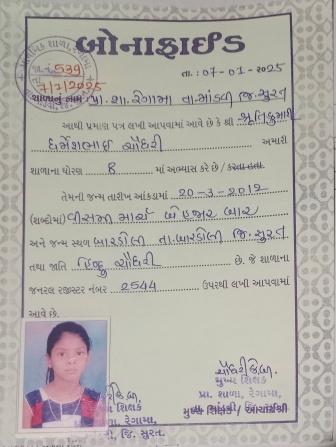 બોનાફાઈડ
જા. નં. 539
7/7/2025
તા. : 07-01-2025
શાળાનું નામ પ્રા. શા. રેગામા તા. માંડવી જિ. સુરત
આથી પ્રમાણ પત્ર લખી આપવામાં આવે છે કે શ્રી શ્રુતિકુમારી
ધર્મેશભાઈ ચૌધરી અમારી
શાળાના ધોરણ 8 માં અભ્યાસ કરે છે / કરતા હતા.
તેમની જન્મ તારીખ આંકડામાં 20-3-2012
(શબ્દોમાં) વીસમી માર્ચ બે હજાર બાર
અને જન્મ સ્થળ બારડોલી તા. બારડોલી જિ. સુરત
તથા જાતિ હિન્દુ ચૌધરી છે. જે શાળાના
જનરલ રજીસ્ટર નંબર 2544 ઉપરથી લખી આપવામાં
આવે છે.
મુખ્ય શિક્ષક
પ્રા. શાળા, રેગામા,
મુખ્ય શિક્ષક / આચાર્યશ્રી
શિક્ષક
રેગામા,
જિ. સુરત.